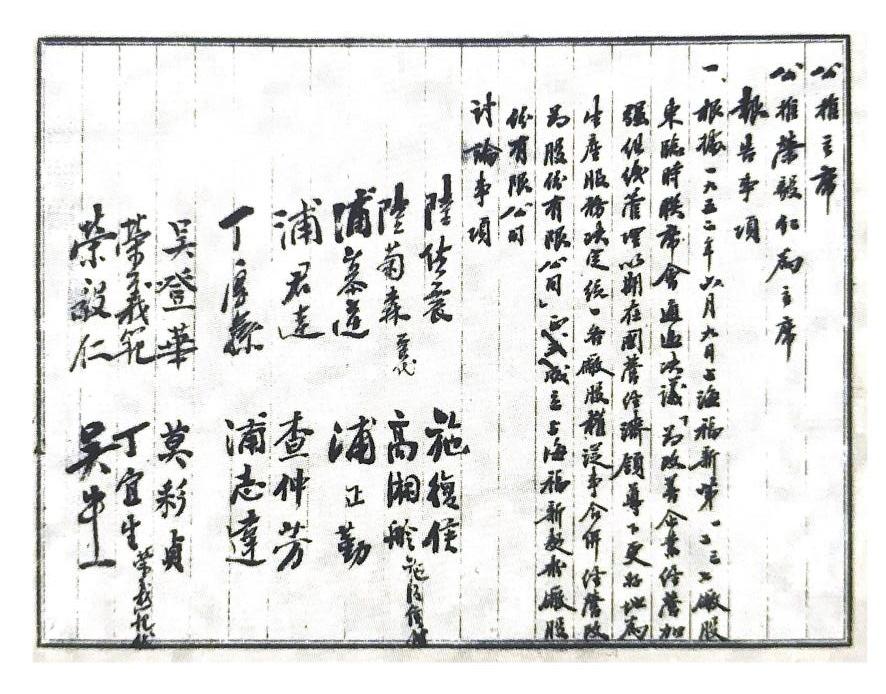 公推主席
公推榮毅仁為主席
報告事項
一、根據一九五二年六月九日上海福新第一二三七廠股
東臨時聯席會通過決議「為改善企業經營加
強組織管理以期在國營經濟領導下更好地為
生產服務決定統一各廠股權從事合併經營改
為股份有限公司」正式成立上海福新麵粉廠股
份有限公司
討論事項
陸佐震 施復侯
陸菊森 高湘舲
浦慕達 浦正勤
浦君達 查仲芳
丁厚蓀 浦志達
吳登華 莫彩貞
榮義範 丁宜生
榮毅仁 吳生一